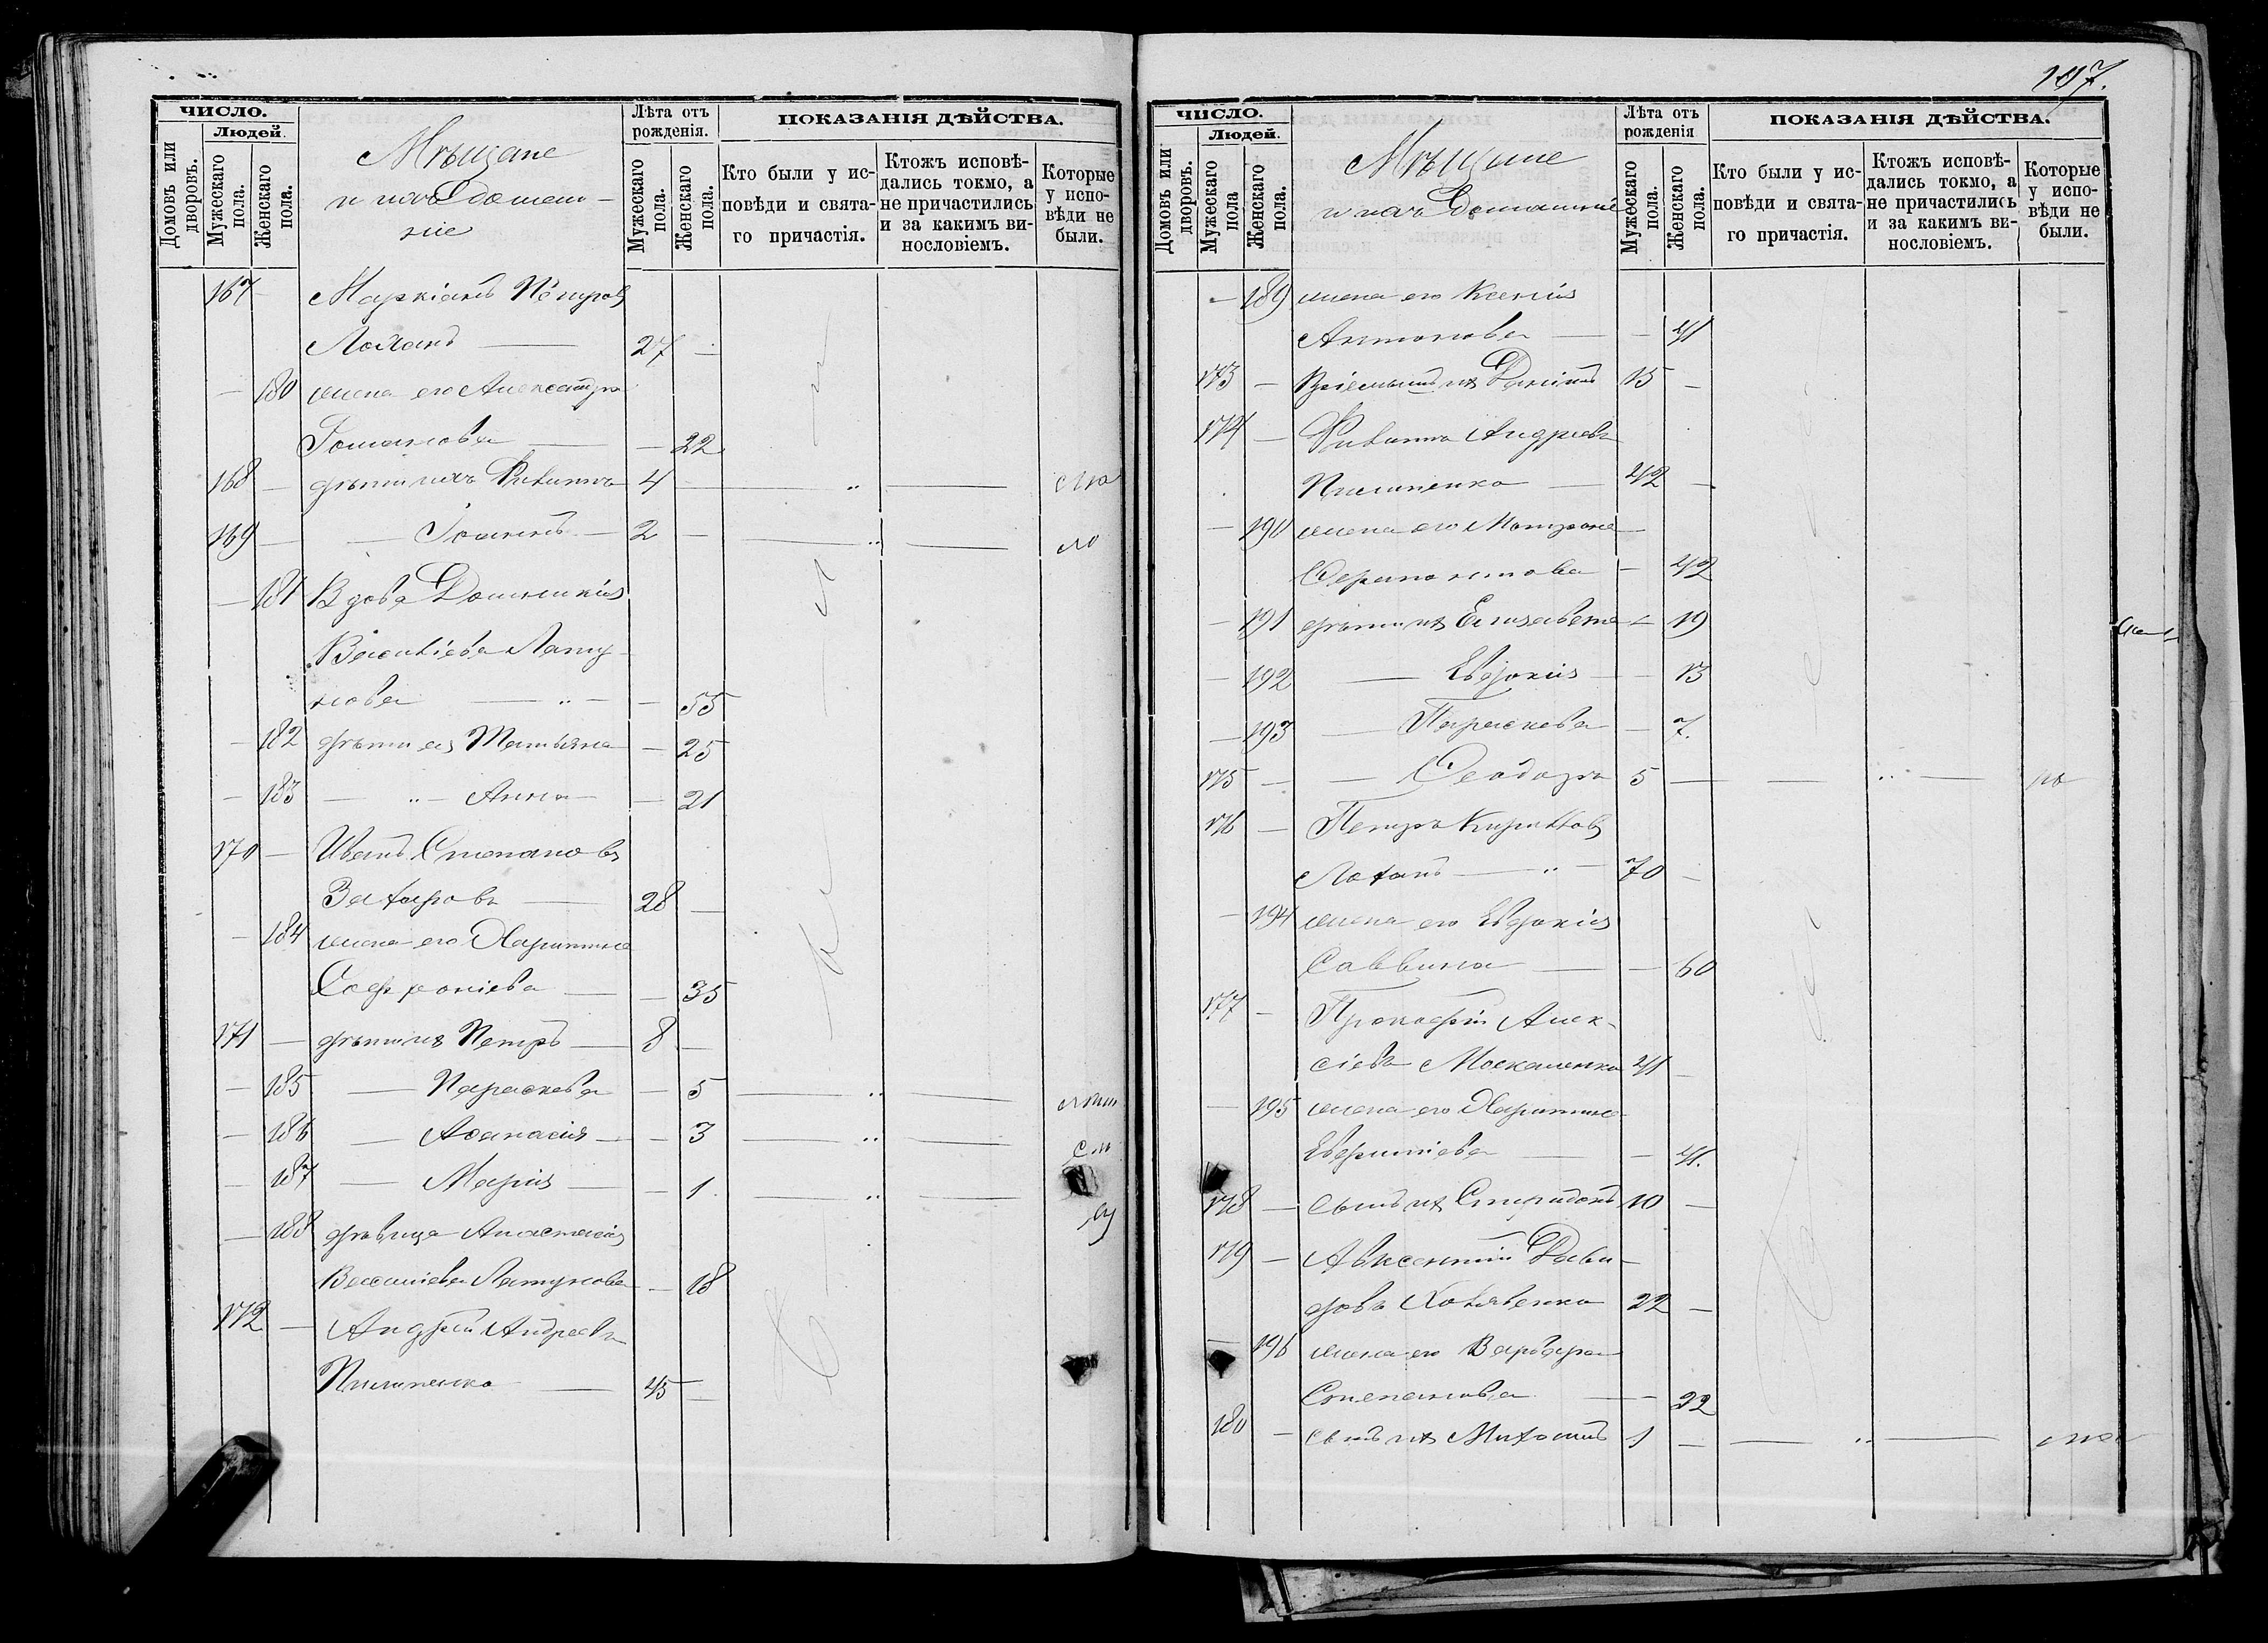 ЧИСЛО.
Людей.
Домовъ или дворовъ.
Мужескаго пола.
Женскаго пола.
Мѣщане
и ихъ домаш-
ніе
Лѣта отъ рожденія.
Мужескаго пола.
Женскаго пола.
ПОКАЗАНІЯ ДѢЙСТВА.
Кто были у ис-
повѣди и свята-
го причастія.
Ктожъ исповѣ-
дались токмо, а
не причастились
и за какимъ ви-
нословіемъ.
Которые
у испо-
вѣди не
были.
167 — Маркіанъ Петровъ
Лоханъ — 27 —
— 180 жена его Александра
Романова — — 22
168 — дѣти ихъ Филиппъ 4 — „ —
169 — — Іоаннъ — 2 — — „ —
— 181 Вдова Домникія
Василіева Лату-
нова — „ — — 55
— 182 дѣти ея Татьяна — 25
— 183 — „ — Анна — — 21
170 — Иванъ Степановъ
Захаровъ — 28 —
— 184 жена его Харитина
Софроніева — — 35
171 — дѣти ихъ Петръ — 8 —
— 185 — Параскева — 5 — „ —
— 186 — Афанасія — — 3 — „ —
— 187 — Марія — — 1. — „ —
— 188 дѣвица Анастасія
Василіева Латунова — 18
172 — Андрей Андреевъ
Пилипенко — 45 —
197.
ЧИСЛО.
Людей.
Домовъ или дворовъ.
Мужескаго пола
Женскаго пола.
Мѣщане
и ихъ домашніе
Лѣта отъ рожденія
Мужескаго пола.
Женскаго пола.
ПОКАЗАНІЯ ДѢЙСТВА.
Кто были у ис-
повѣди и свята-
го причастія.
Ктожъ исповѣ-
дались токмо, а
не причастились
и за какимъ ви-
нословіемъ.
Которые
у испо-
вѣди не
были.
— 189 жена его Ксенія
Антонова — — 41
173 — Пріемышъ ихъ Даніилъ 15 —
174 — Филиппъ Андреевъ
Пилипенко — 42 —
— 190 жена его Матрона
Ферапонтова — 42
— 191 дѣти ихъ Елизавета — 19
— 192 — Евдокія — — 13
— 193 — Параскева — 7.
175 — — Феодоръ 5 — — „ —
176 — Петръ Кирилловъ
Лоханъ — „ — 70 —
— 194 жена его Евдокія
Саввина — — 60
177 — Прокофій Алек-
сіевъ Москаленко 41 —
— 195 жена его Харитина
— — 41.
178 — сынъ ихъ Спиридонъ 10 —
179 — Авксентій Дави-
довъ 22 —
— 196 жена его Варвара
Степанова — — 22
180 — сынъ ихъ 1 — — „ —